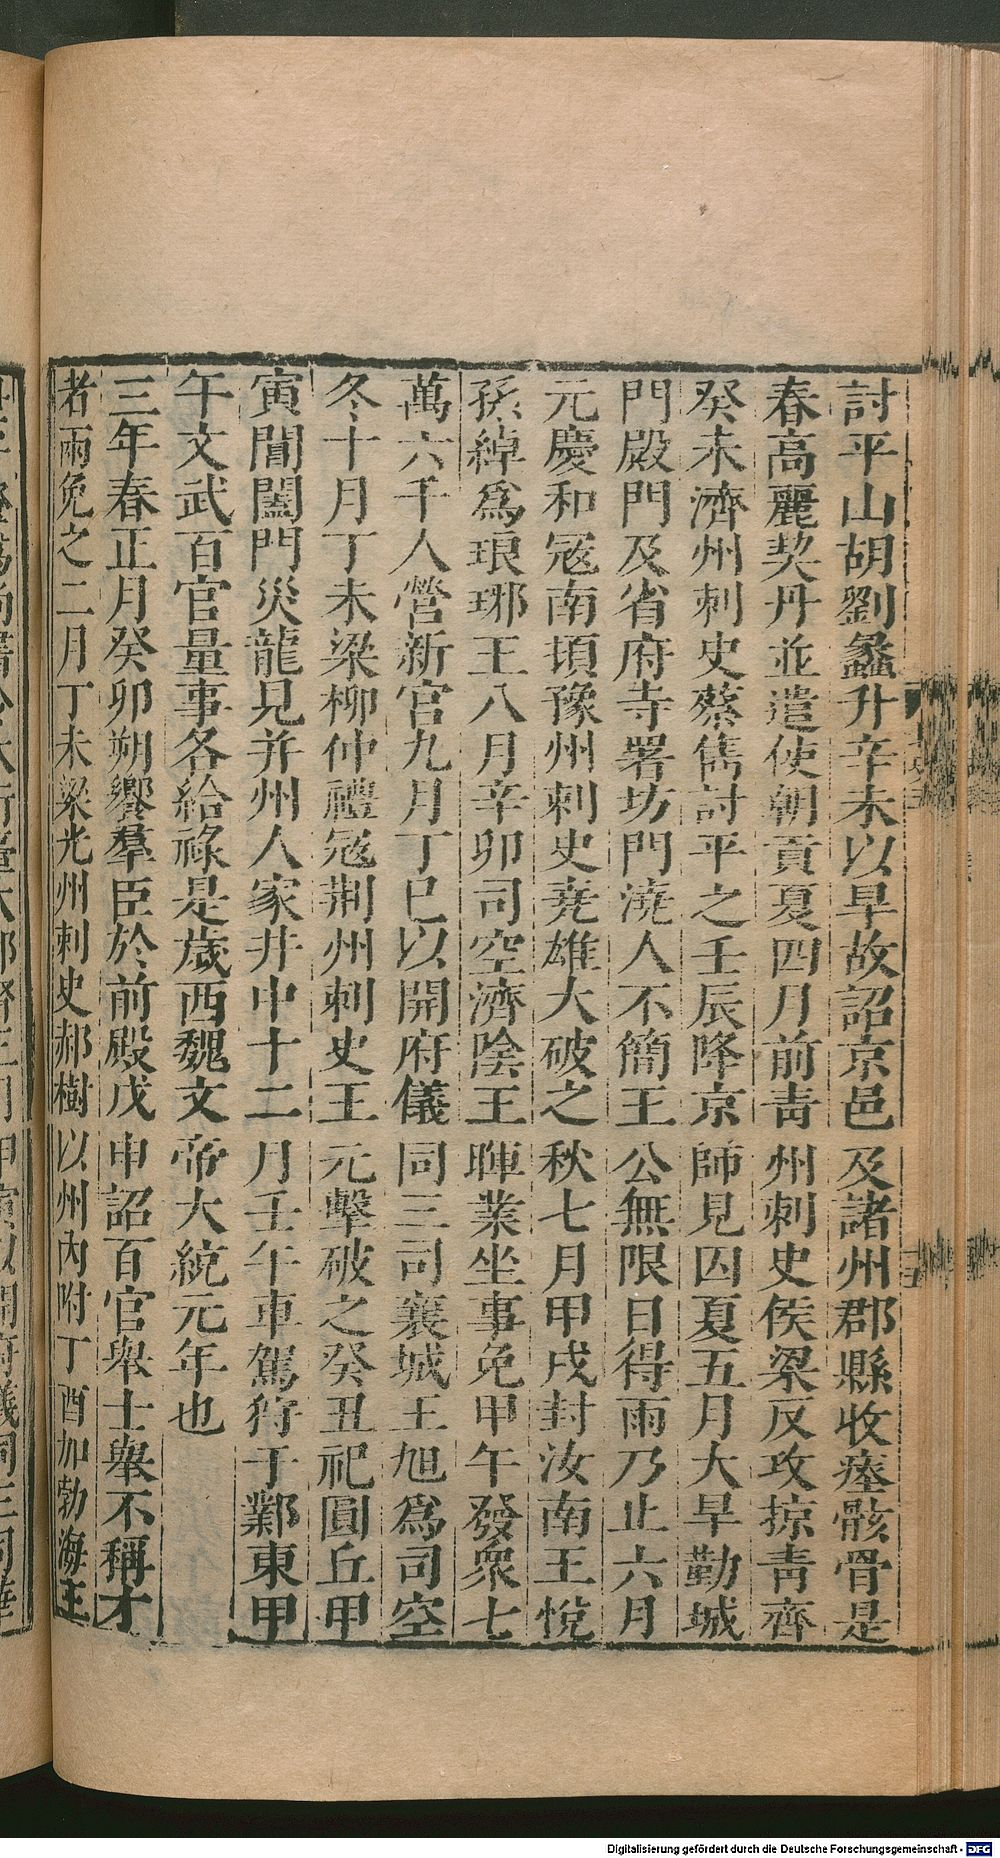 討平山胡劉蠡升辛未以旱故詔京邑及諸州郡縣收瘞骸骨是
春高麗契丹並遣使朝貢夏四月前靑州刺史侯梁反攻掠靑齊
癸未濟州刺史蔡儁討平之壬辰降京師見囚夏五月大旱勤城
門殿門及省府寺署坊門澆人不簡王公無限日得雨乃止六月
元慶和寇南頃豫州刺史尭雄大破之秋七月甲戌封汝南王悅
孫綽爲琅琊王八月辛卯司空濟陰王暉業坐事免甲午發衆七
萬六千人營新宫九月丁巳以開府儀同三司襄城王旭爲司空
冬十月丁未梁柳仲禮寇荆州刺史王元擊破之癸丑祀圓丘甲
寅閶闔門災龍見并州人家井中十二月壬午車駕狩于鄴東甲
午文武百官量事各給祿是歲西魏文帝大統元年也
三年春正月癸卯朔饗羣臣於前殿戊申詔百官舉士舉不稱才
者兩免之二月丁未梁光州刺史郝樹以州內附丁酉加勃海王
Digitalisierung gefördert durch die Deutsche Forschungsgemeinschaft - DFG